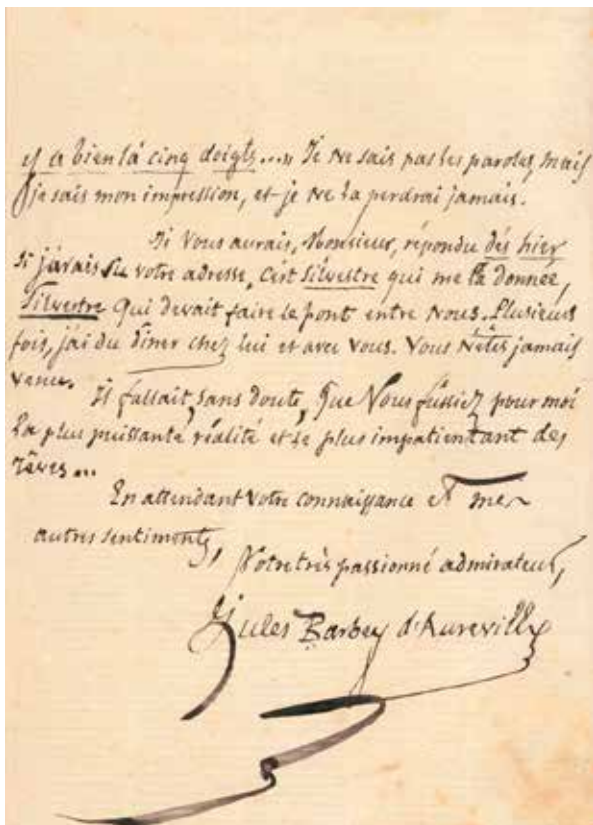 y a bien là cinq doigts...." Je ne sais pas les paroles, mais
je sais mon impression, et je ne la perdrai jamais.
Je vous aurais, Monsieur, répondu dès hier
si j'avais su votre adresse, C'est Silvestre qui me l'a donnée,
Silvestre qui devait faire le pont entre nous. Plusieurs
fois, j'ai du dîner chez lui et avec vous. Vous n'êtes jamais
venu.
Il fallait, sans doute, que Vous fussiez pour moi
la plus puissante réalité et le plus impatientant des
rêves...
En attendant votre connaissance et mes
autres sentiments,
Votre très passionné admirateur,
Jules Barbey d'Aurevilly